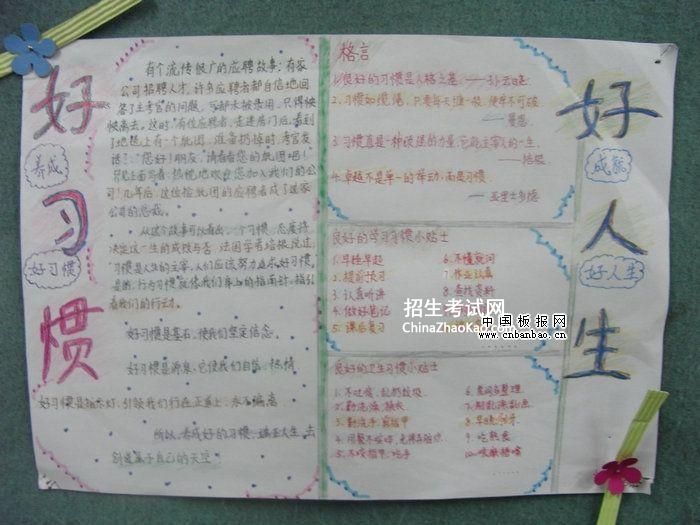 好习惯
养成
好习惯
有个流传很广的应聘故事:有家
公司招聘人才,许多应聘者都自信地回
答了主考官的问题,
离去。这时,有位应聘者,走进房门后,看到
了地毯上有一个纸团,准备扔掉时,考官发
话了:"您好!朋友,请看看您的纸团吧!"
热忱地欢迎您加入我们的公
司",几年后,这位捡纸团的应聘者成了这家
公司的总裁。
从这个故事可以看出,一个习惯,
决定这一生的成败与否,法国学者培根说过,
习惯是人生的主宰,人们应该努力追求好习惯。
行为习惯就像我们身上的指南针,指引
着我们的行动。
好习惯是基石,使我们坚定信念,
好习惯是源泉,它使我们自信、热情
好习惯是指示灯,引领我们行在正道上,永不偏离
所以,养成好的习惯,
创造属于自己的天空!
格言
1.良好的习惯是人格之基。——孙云晓
2.习惯如缆绳,只要每天缠一股,便牢不可破
——曼恩
3.习惯真是一种顽强的力量,它能主宰人的一生。
——培根
4.卓越不是单一的举动,而是习惯。
——亚里士多德
良好的学习习惯小贴士
1.早睡早起
2.提前预习
3.认真听讲
4.做好笔记
5.课后复习
6.不懂就问
7.作业认真
8.查找资料
良好的卫生习惯小贴士
1.不吐痰、乱扔垃圾
2.勤洗澡、换衣
3.勤洗手、剪指甲
5.不咬指甲、吃手
8.早晚刷牙
好人生
成就
好人生
招生考试网
ChinaZhaoKao.com
中国板报网
www.cnbanbao.cn